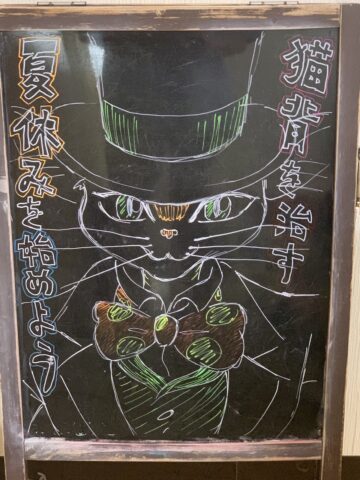 猫背を治す
夏休みを始めよう